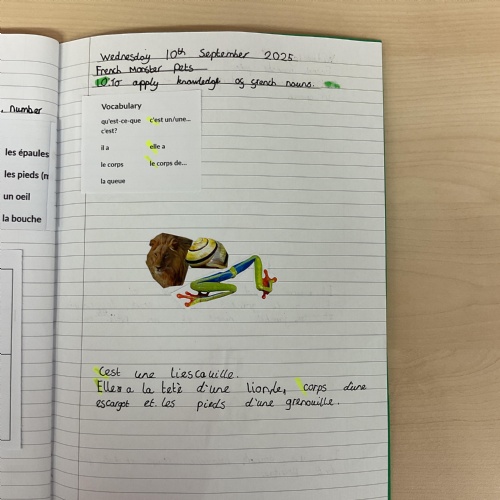 Wednesday 10th September 2025
French Monster Pets
LO: To apply knowledge of french nouns.
, number
les épaules
les pieds (m
un oeil
la bouche
Vocabulary
qu'est-ce-que c'est un/une...
c'est?
il a elle a
le corps le corps de...
la queue
C'est une liescauille.
Elle a la tetè d'une lion/e, corps d'une
escargot et les pieds d'une grenouille.